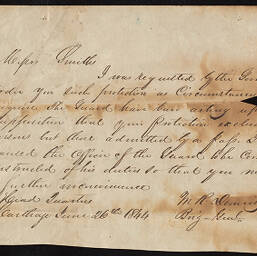 Messrs Smiths
I was requested by the Gov
render you such protection as Circumstances
require The Guard have been acting
supposition that your Protection
persons but those admitted by a Pass. I
the Officer of the Guard who
instructed of his duties so that you
further inconvenience
Head Quarters M. R. Deming
Carthage June 26th 1844 Brig. Genl.